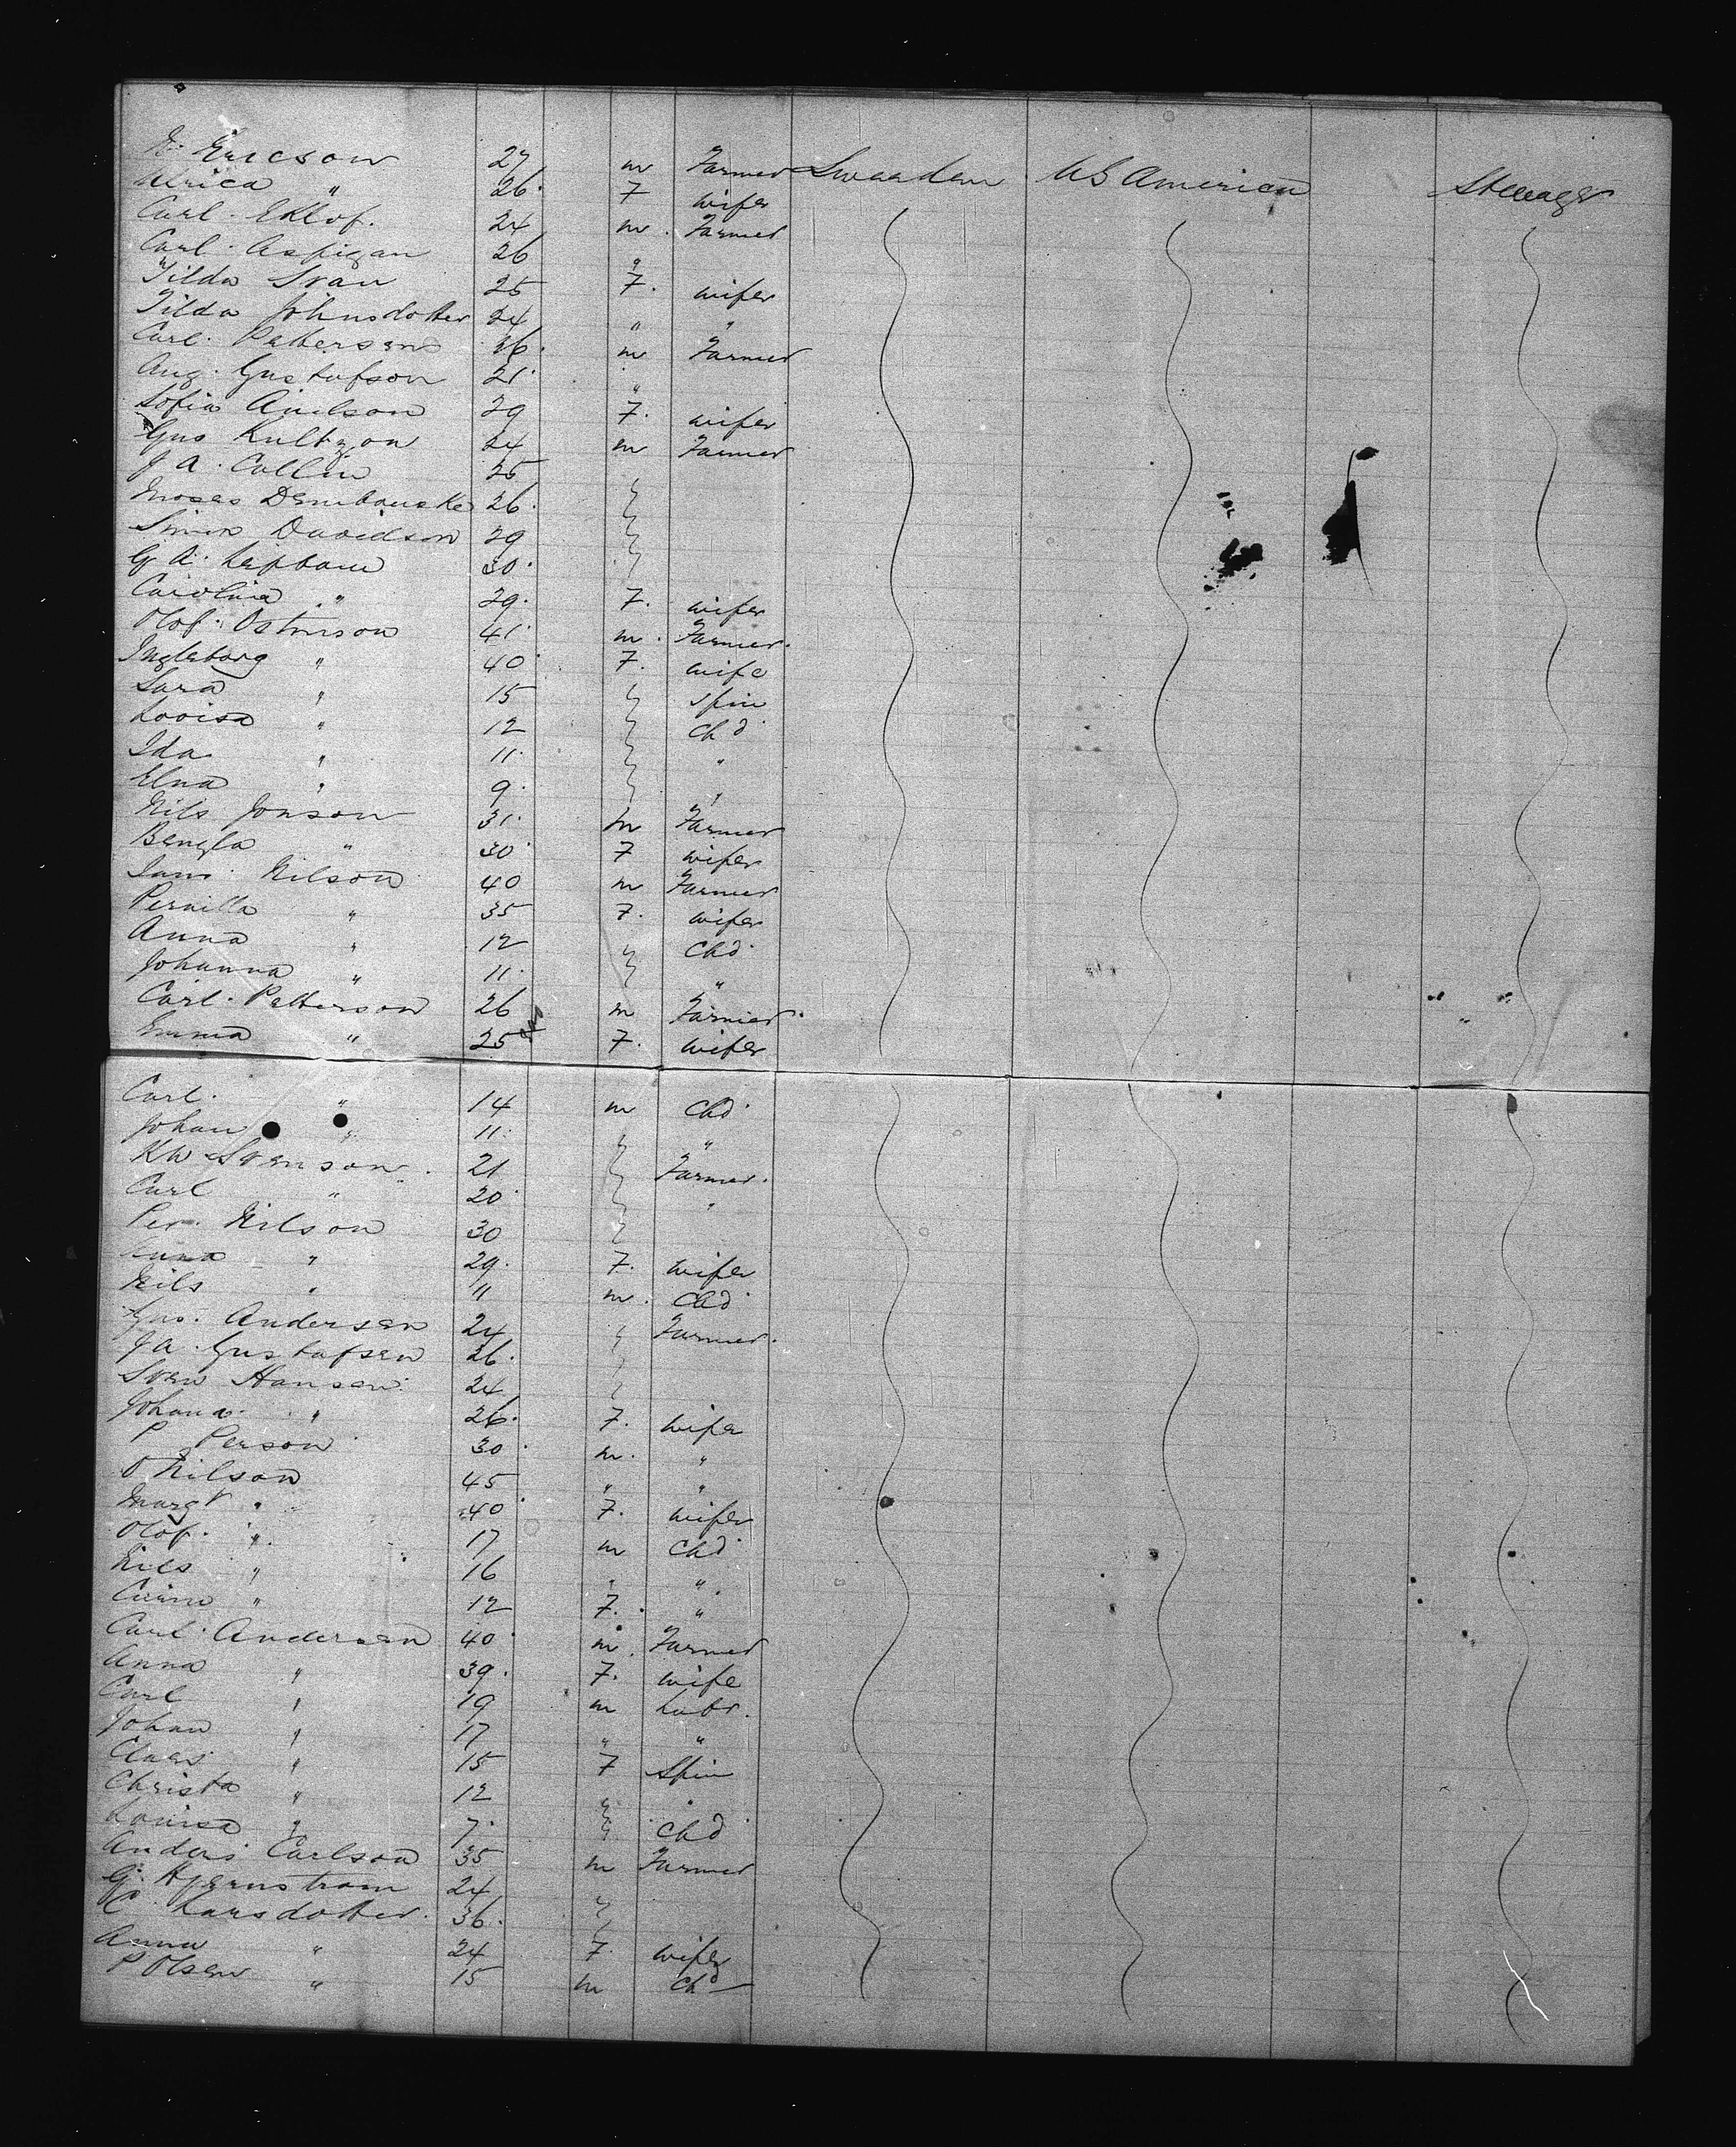 N. Ericson 27 m Farmer Sweaden US American Steeage
Ulrica " 26 F wife
Carl. Eklof. 24 m. Farmer
Carl. Aspigan 26 "
Tilda Svan 25 F. wife
Tilda Johnsdotter 24 " "
Carl. Pettersons 26 m Farmer
Aug. Gustafson 21 "
Sofia Axelson 29 F. wife
Gus Kultzon 24 m Farmer
J A. Collin 25
Moses Dembouske 26
Simon Davidson 29
G A. 30
Carolina " 29. F. wife
Olof. Ostmson 41 m. Farmer.
Ingleborg " 40 F. wife
Sara " 15 spin
Lovisa " 12 Chd
Ida " 11 "
Elna " 9. "
Nils Jonson 31. m Farmer
Bengta " 30 F wife
Jans. Nilson 40 m Farmer
Pernilla " 35 F. wife
Anna " 12 Chd
Johanna " 11. "
Carl. Petterson 26 m Farmer.
Emma " 25 F. wife
Carl. " 14 m Chd
Johan " 11. "
KW Svenson. 21 Farmer.
Carl " 20 "
Per. Nilson 30
Anna " 29. F. wife
Nils " 11 m. Chd
Gus. Andersen 24 Farmer.
J A. Gustafsen 26.
Sven Hansen 24
Johana. " 26. F. wife
P Person 30 m. "
O Nilson 45 " "
Margt " 40 F. wife
Olof. " 17 m Chd
Nils " 16 " "
" 12 F. "
Carl. Andersen 40 m. Farmer
Anna " 39. F. wife
Carl " 19 m Labr.
Johan " 17 " "
Claes " 15 F Spin
Christa " 12 "
Louisa " 7. Chd
Anders Carlson 35 m Farmer
G. Hjernstrom 24
C. Larsdotter. 36.
Anna " 24 F. wife
P Olsen " 15 m Chd